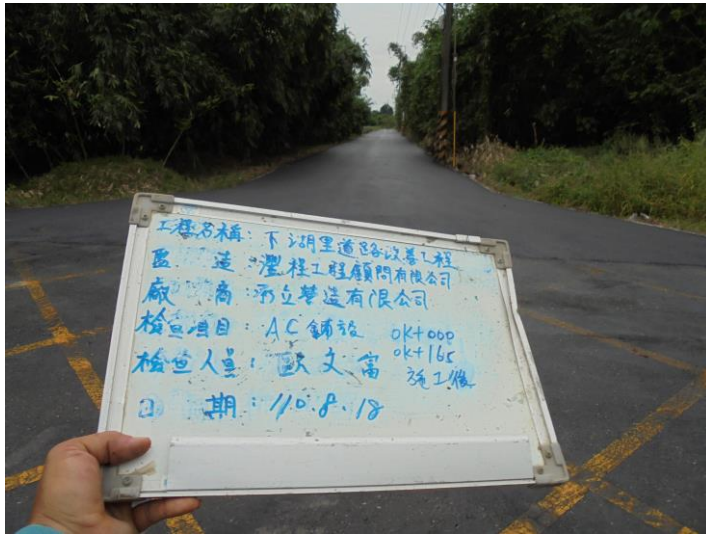 工程名稱：下湖里道路改善工程
監　造：灃程工程顧問有限公司
廠　商：承立營造有限公司
檢查項目：AC鋪設 0k+000
0k+165
檢查人員：歐文富 施工後
日　期：110.8.18